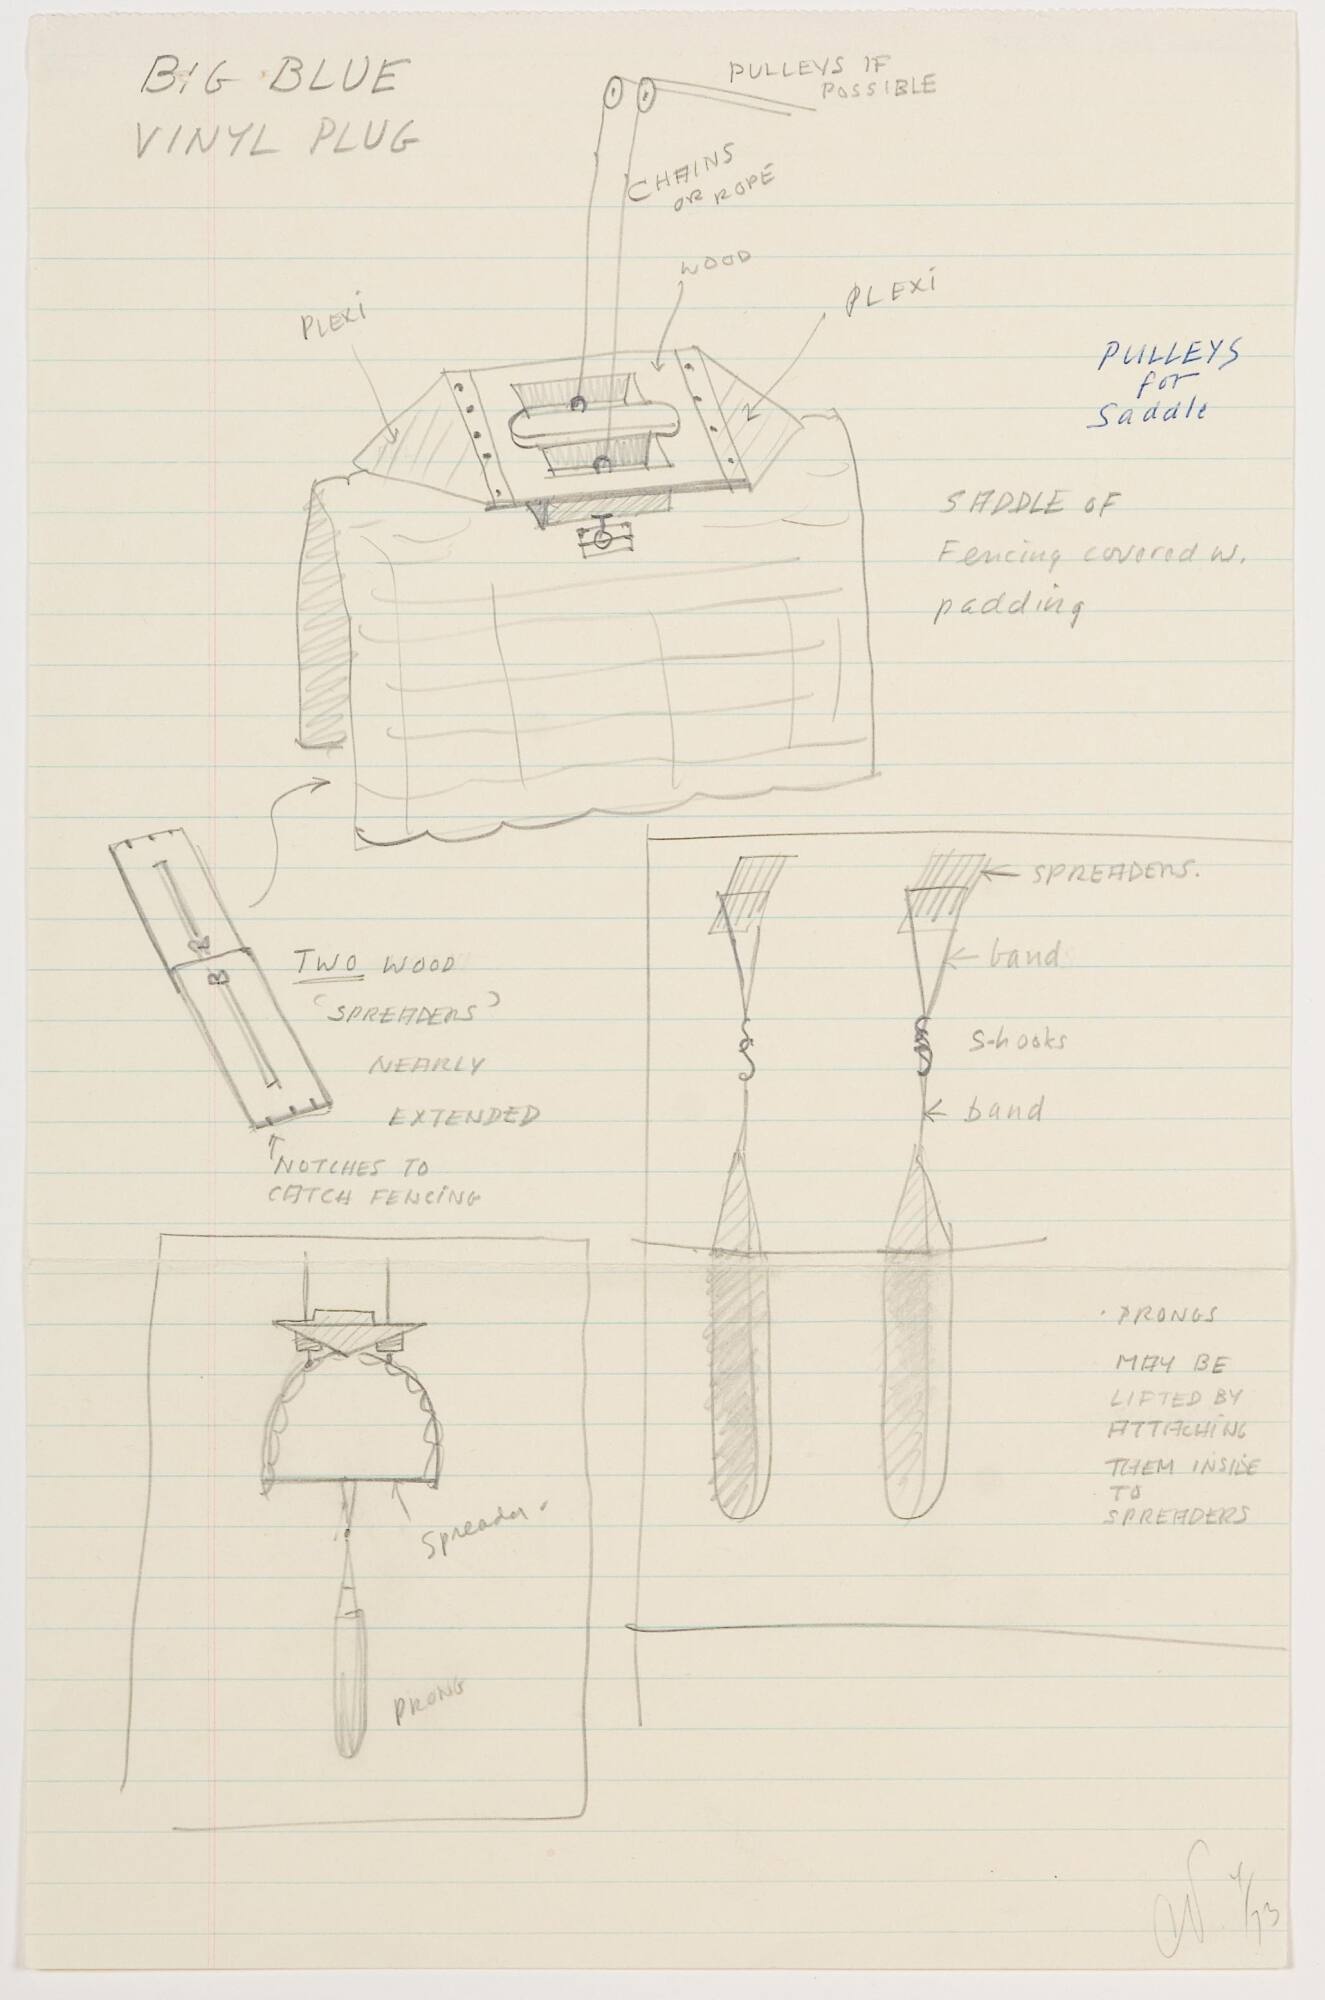 BIG BLUE
VINYL PLUG
PULLEYS IF
POSSIBLE
CHAINS
OR ROPE
WOOD
PLEXI
PLEXI
PULLEYS
for
Saddle
SADDLE OF
Fencing covered w.
padding
R
B
TWO WOOD
"SPREADERS"
NEARLY
EXTENDED
NOTCHES TO
CATCH FENCING
SPREADERS.
band
S-hooks
band
PRONGS
MAY BE
LIFTED BY
ATTACHING
THEM INSIDE
TO
SPREADERS
Spreader
PRONG
4/73